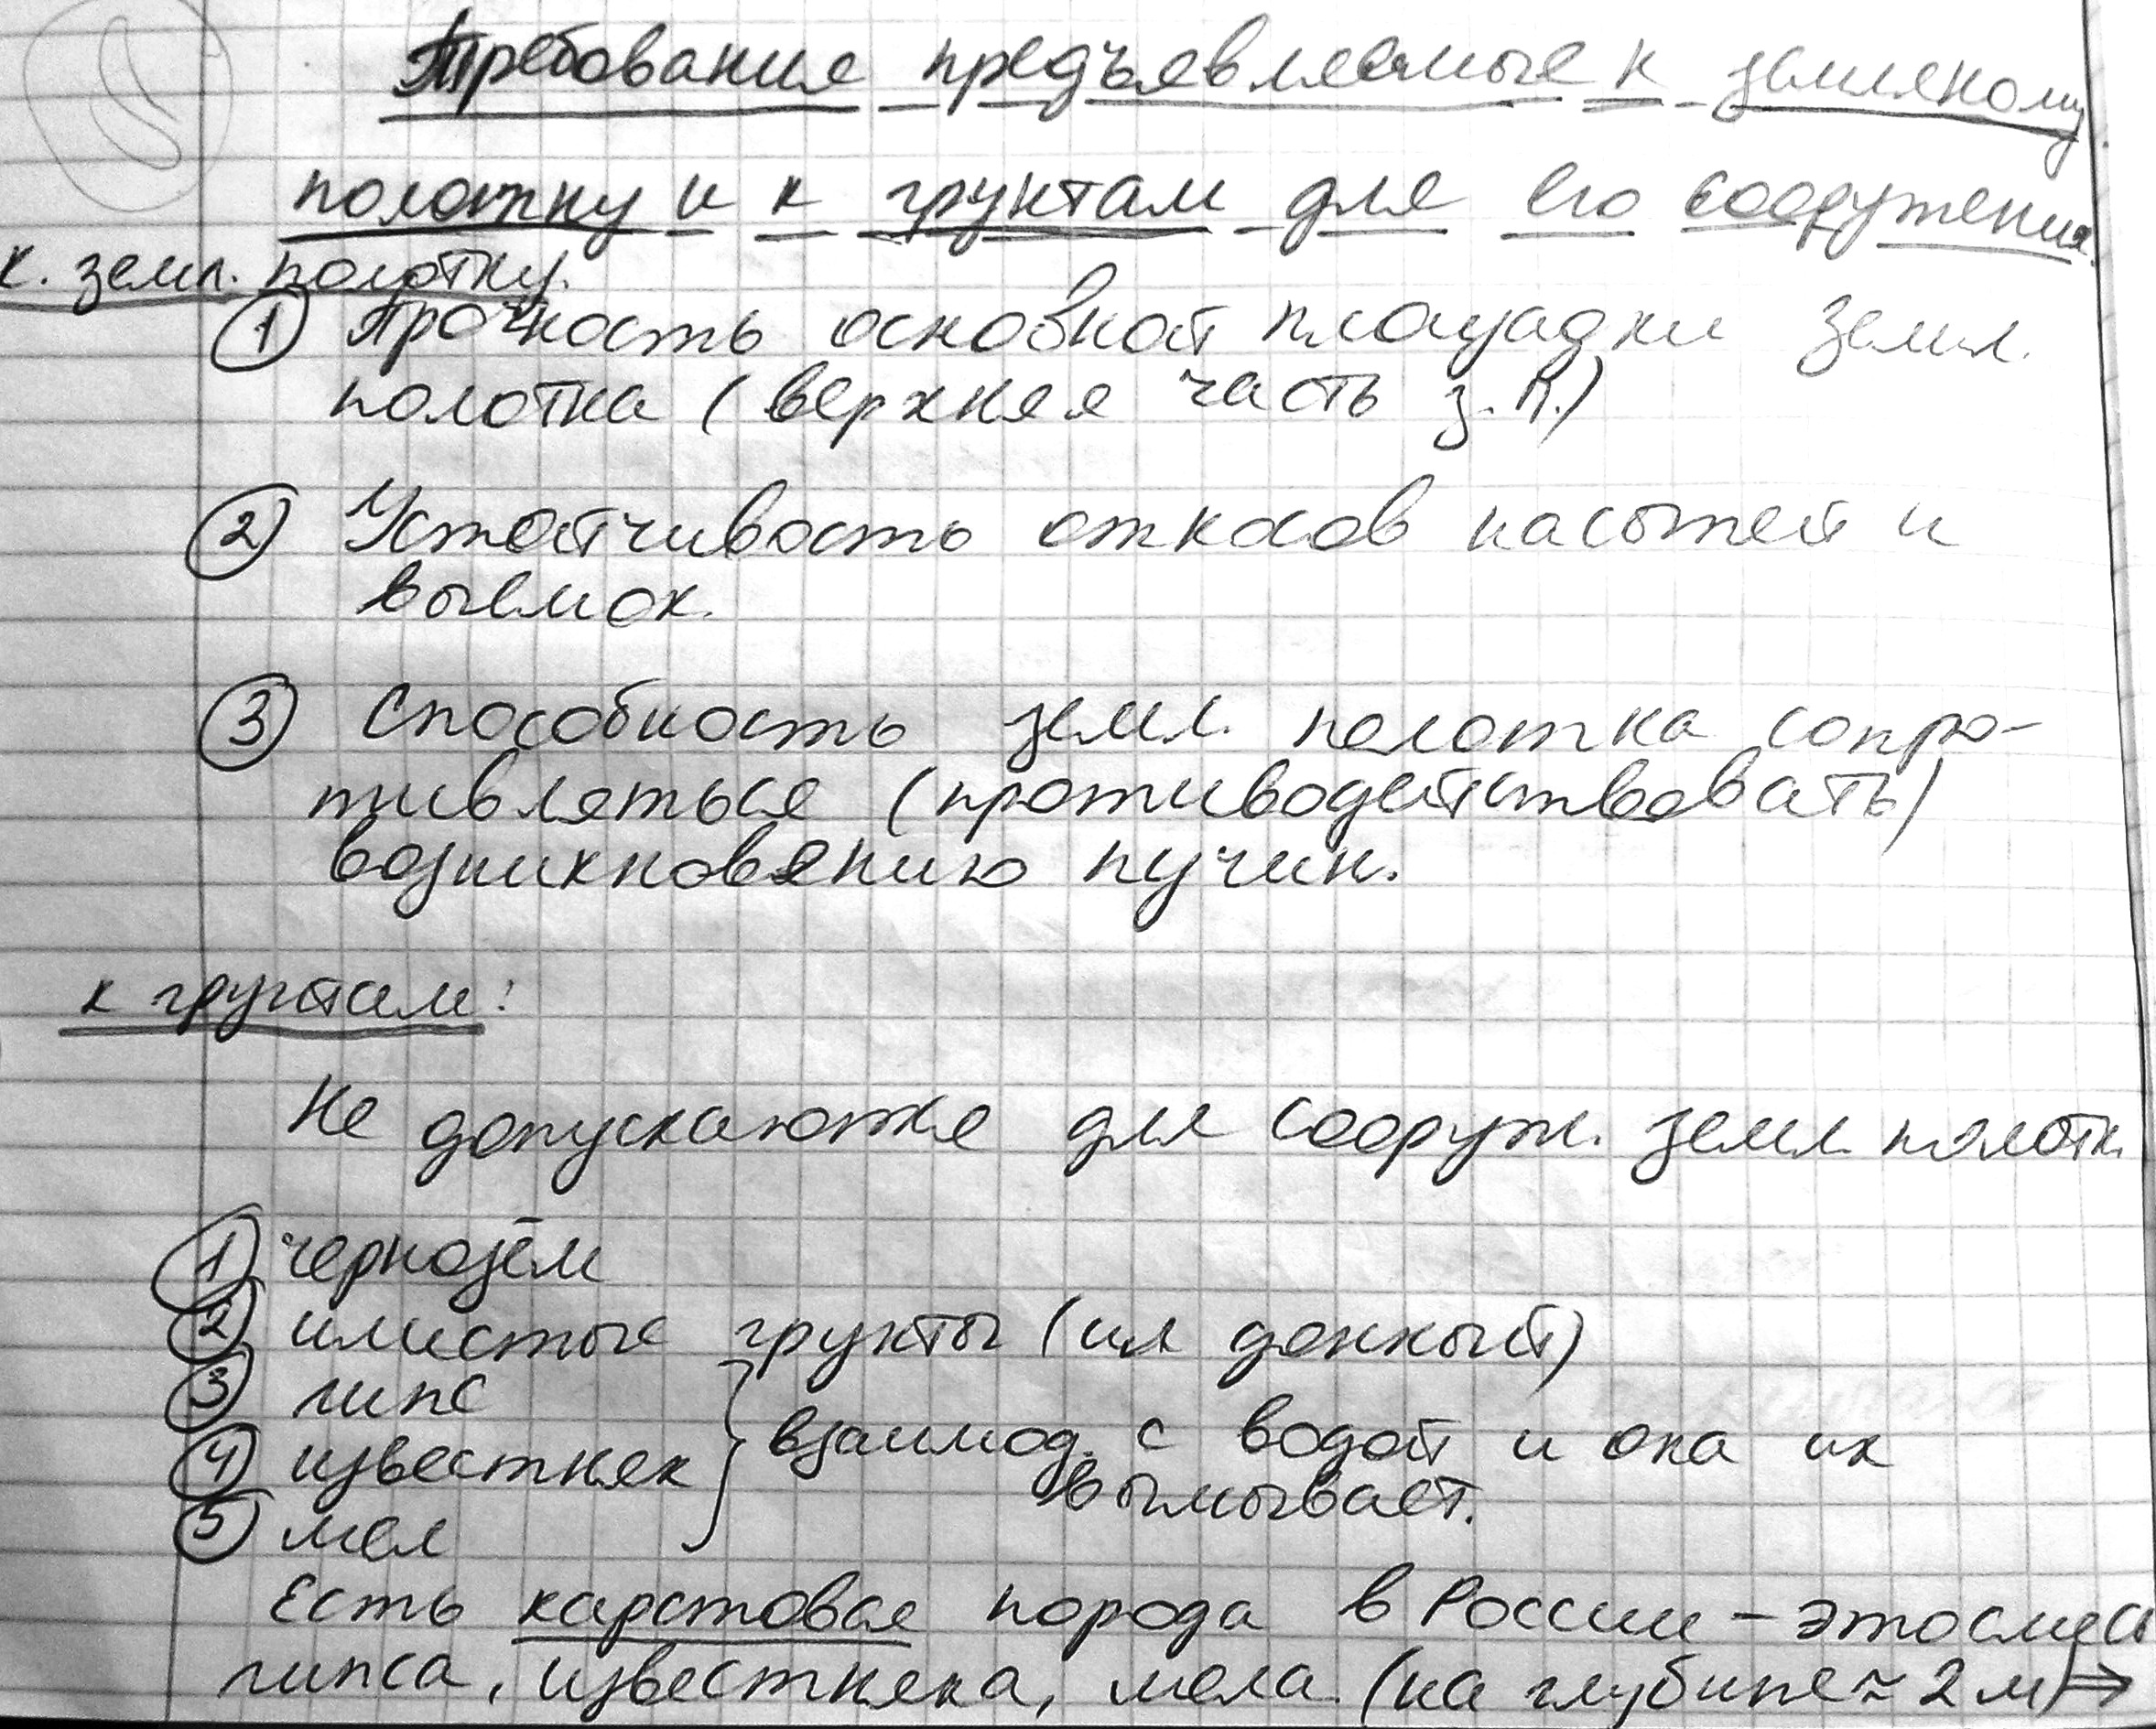 Требования предъявляемые к земляному
полотну и к грунтам для его сооружения.
к. земл. полотну.
① Прочность основной площадки земл.
полотна (верхняя часть з.п.)
② Устойчивость откосов насыпей и
выемок.
③ Способность земл. полотна сопро-
тивляться (противодействовать)
возникновению пучин.
к грунтам:
Не допускаются для сооруж. земл. полотн
① чернозём
② илистые грунты (ил донный)
③ гипс
④ известняк } взаимод. с водой и она их
вымывает.
⑤ мел
Есть карстовая порода в России – это смесь
гипса, известняка, мела. (на глубине ≈ 2 м) ⇒